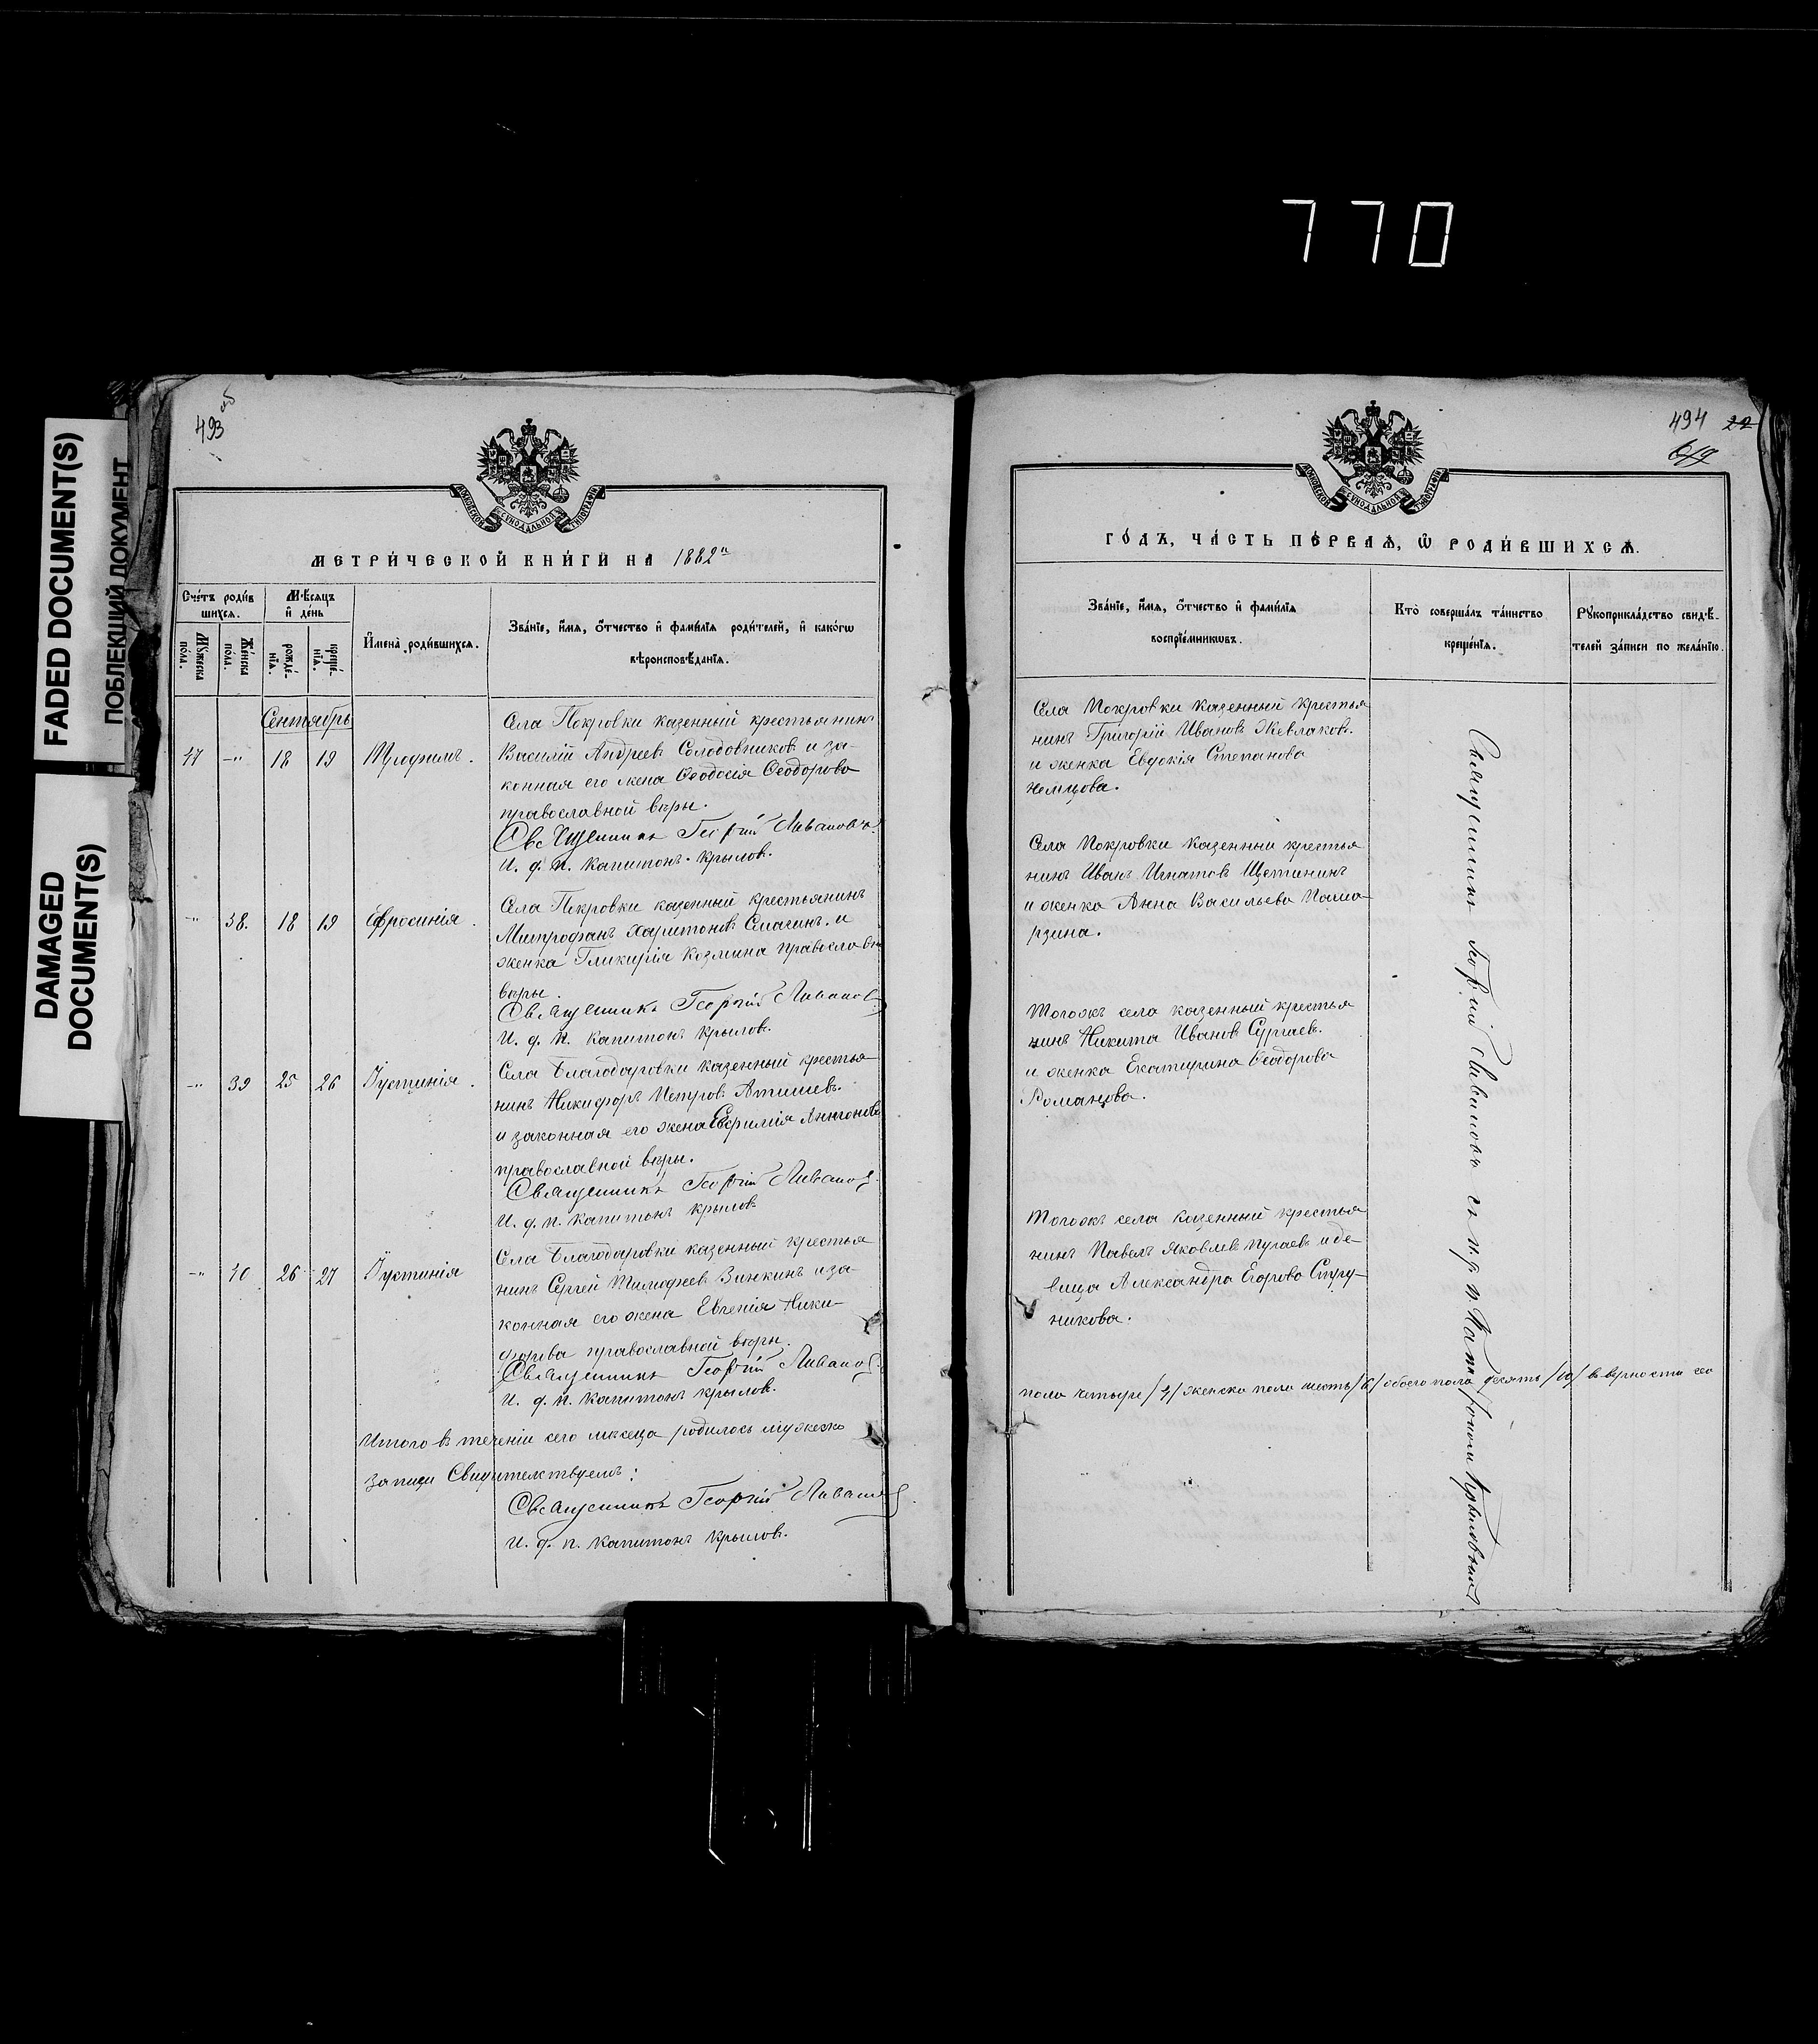 770
FADED DOCUMENT(S)
ПОБЛЕКЩИЙ ДОКУМЕНТ
DAMAGED
DOCUMENT(S)
493 об
МОСКОВСКОЙ СѴНОДАЛЬНОЙ ТИПОГРАФІИ
МЕТРИ́ЧЕСКОЙ КНИ́ГИ НА 1882й
Сче́тъ роди́в
шихся.
Мꙋ́жеска
по́ла.
Же́нска
по́ла.
Мѣ́сяцъ
и҆ де́нь
рожде́-
нїя.
креще́-
нїя.
И҆мена̀ роди́вшихся.
Зва́нїе, и҆́мя, ѻ҆́тчество и҆ фами́лїя роди́телей, и҆ како́гѡ
вѣроисповѣ́данїя.
Сентябрь
47 -" 18 19 Трофимъ.
Села Покровки казенный крестьянинъ
Василій Андреевъ Солодовниковъ и за-
конная его жена Ѳеодосія Ѳеодорова
православной вѣры.
Священникъ Георгій Ливановъ.
И. д. п. Капитонъ Крыловъ.
-" 38. 18 19 Евфросинія.
Села Покровки казенный крестьянинъ
Митрофанъ Харитоновъ и
женка Гликирія Козмина православн
вѣры.
Священникъ Георгій Ливановъ
И. д. п. Капитонъ Крыловъ.
-" 39 25 26 Іустинія.
Села Благодаровки казенный крестья
нинъ Никифоръ Петровъ Атишевъ
и законная его жена Евфимія Антонова
православной вѣры.
Священникъ Георгій Ливановъ
И. д. п. Капитонъ Крыловъ
-" 40 26 27 Іустинія
Села Благодаровки казенный крестья
нинъ Сергей Тимофеевъ Зинкинъ и за-
конная его жена Евгенія Ники-
форова православной вѣры.
Священникъ Георгій Ливановъ
И. д. п. Капитонъ Крыловъ.
Итого въ теченіи сего месеца родилось мужеско
записи Свидителствуемъ:
Священникъ Георгій Ливановъ
И. д. п. Капитонъ Крыловъ.
494 22
МОСКОВСКОЙ СѴНОДАЛЬНОЙ ТИПОГРАФІИ
ГО́ДЪ, ЧА́СТЬ ПЕ́РВАЯ, Ѡ҆ РОДИ́ВШИХСЯ.
Зва́нїе, и҆́мя, ѻ҆́тчество и҆ фами́лїя
воспрїе́мникѡвъ.
Кто̀ соверша́лъ та́инство
креще́нїя.
Рꙋкоприкла́дство свидѣ́-
телей за́писи по жела́нїю.
Села Покровки казенный крестья
нинъ Григорій Ивановъ Жевлаковъ.
и женка Евдокія Степанова
Немцова.
Села Покровки казенный крестья
нинъ Иванъ Игнатовъ Щетининъ
и женка Анна Васильева Пама
рзина.
Тогожъ села казенный крестья
нинъ Никита Ивановъ Сургаевъ.
и женка Екатирина Ѳеодорова
Романцова.
Тогожъ села казенный крестья
нинъ Павелъ Яковлевъ Пугаевъ и де-
вица Александра Егорова Стру-
никова.
пола четыре /4/ женска пола шесть /6/ обоего пола десять /10/ въ верности сео
Священникъ Георгій Ливановъ съ и. д. п. Капитономъ Крыловымъ